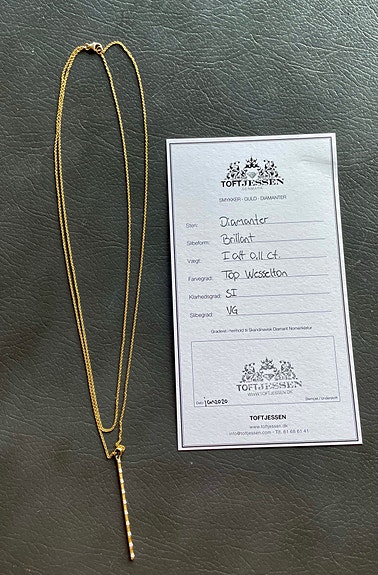 TOFTJESSEN
DENMARK
SMYKKER · GULD · DIAMANTER
Sten: Diamanter
Slibeform: Brillant
Vægt: I alt 0,11 ct.
Farvegrad: Top Wesselton
Klarhedsgrad: SI
Slibegrad: VG
Graderet i henhold til Skandinavisk Diamant Nomenklatur
TOFTJESSEN
WWW.TOFTJESSEN.DK
Dato Stempel / Underskrift
TOFTJESSEN
www.toftjessen.dk
info@toftjessen.com - Tlf. 61 66 61 41